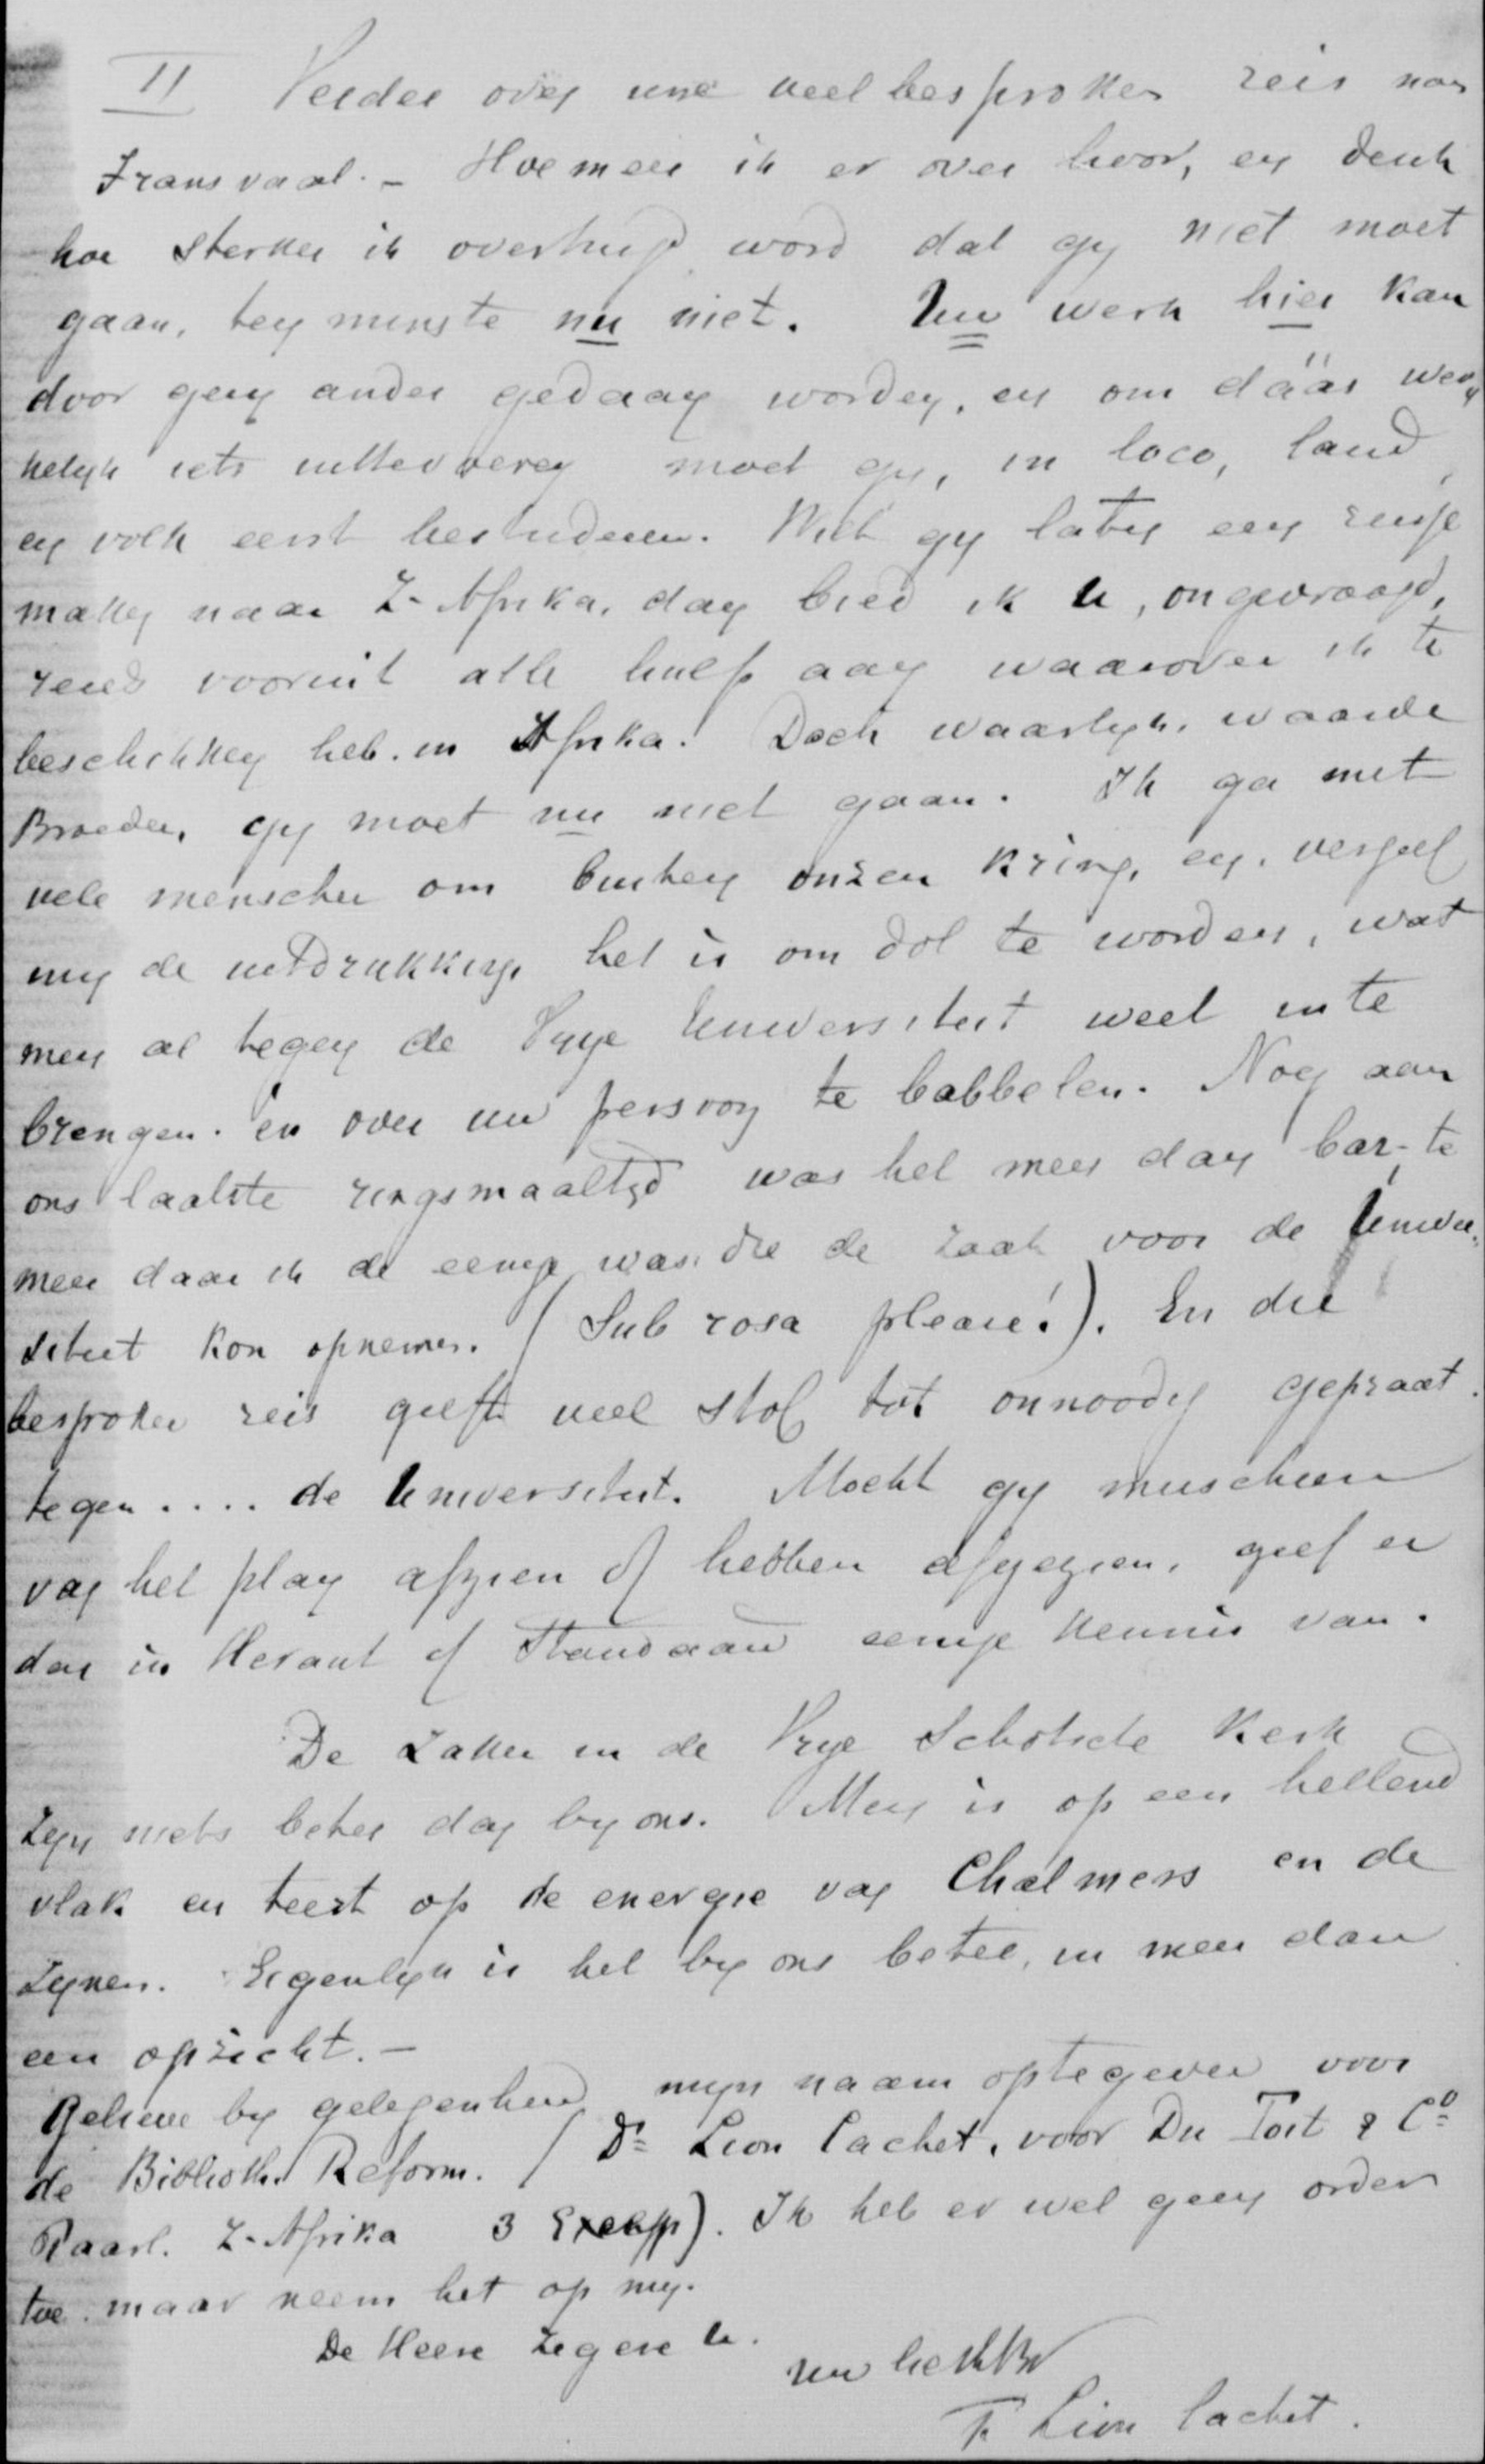 II Verder over uwe veelbesproken reis naar
Transvaal. - Hoe meer ik er over hoor, en denk
hoe sterker ik overtuigd word dat gy niet moet
gaan, ten minste nu niet. Uw werk hier kan
door geen ander gedaan worden, en om dáár wer-
kelyk iets uittevoeren moet gy, in loco, land
en volk eerst bestuderen. Wilt gy later een reisje
maken naar Z-Afrika, dan bied ik U, ongevraagd,
reeds vooruit alle hulp aan waarover ik te
beschikken heb in Afrika. Doch waarlyk, waarde
Broeder, gy moet nu niet gaan. Ik ga met
vele menschen om buiten onzen kring, en, vergeef
my de uitdrukking, het is om dol te worden, wat
men al tegen de Vrye Universiteit weet in te
brengen. en over uw persoon te babbelen. Nog aan
ons laatste ringsmaaltyd was het meer dan bar, te
meer daar ik de eenige was, die de zaak voor de Univer-
siteit kon opnemen. (Sub rosa please!). En die
besproken reis geeft veel stof tot onnoodig gepraat
tegen .... de Universiteit. Mocht gy misschien
van het plan afzien of hebben afgezien, geef er
dan in Heraut of Standaard eenige kennis van.
De zaken in de Vrye Schotsche Kerk
zyn niets beter dan by ons. Men is op een hellend
vlak en teert op de energie van Chalmers en de
zynen. Eigenlyk is het by ons beter, in meer dan
een opzicht. -
Gelieve by gelegenheid myn naam optegeven voor
de Biblioth. Reform. (Ds Lion Cachet, voor Du Toit & Co
Paarl. Z-Afrika 3 Exempl). Ik heb er wel geen order
toe. maar neem het op my.
De Heere zegene U.
Uw
F. Lion Cachet.